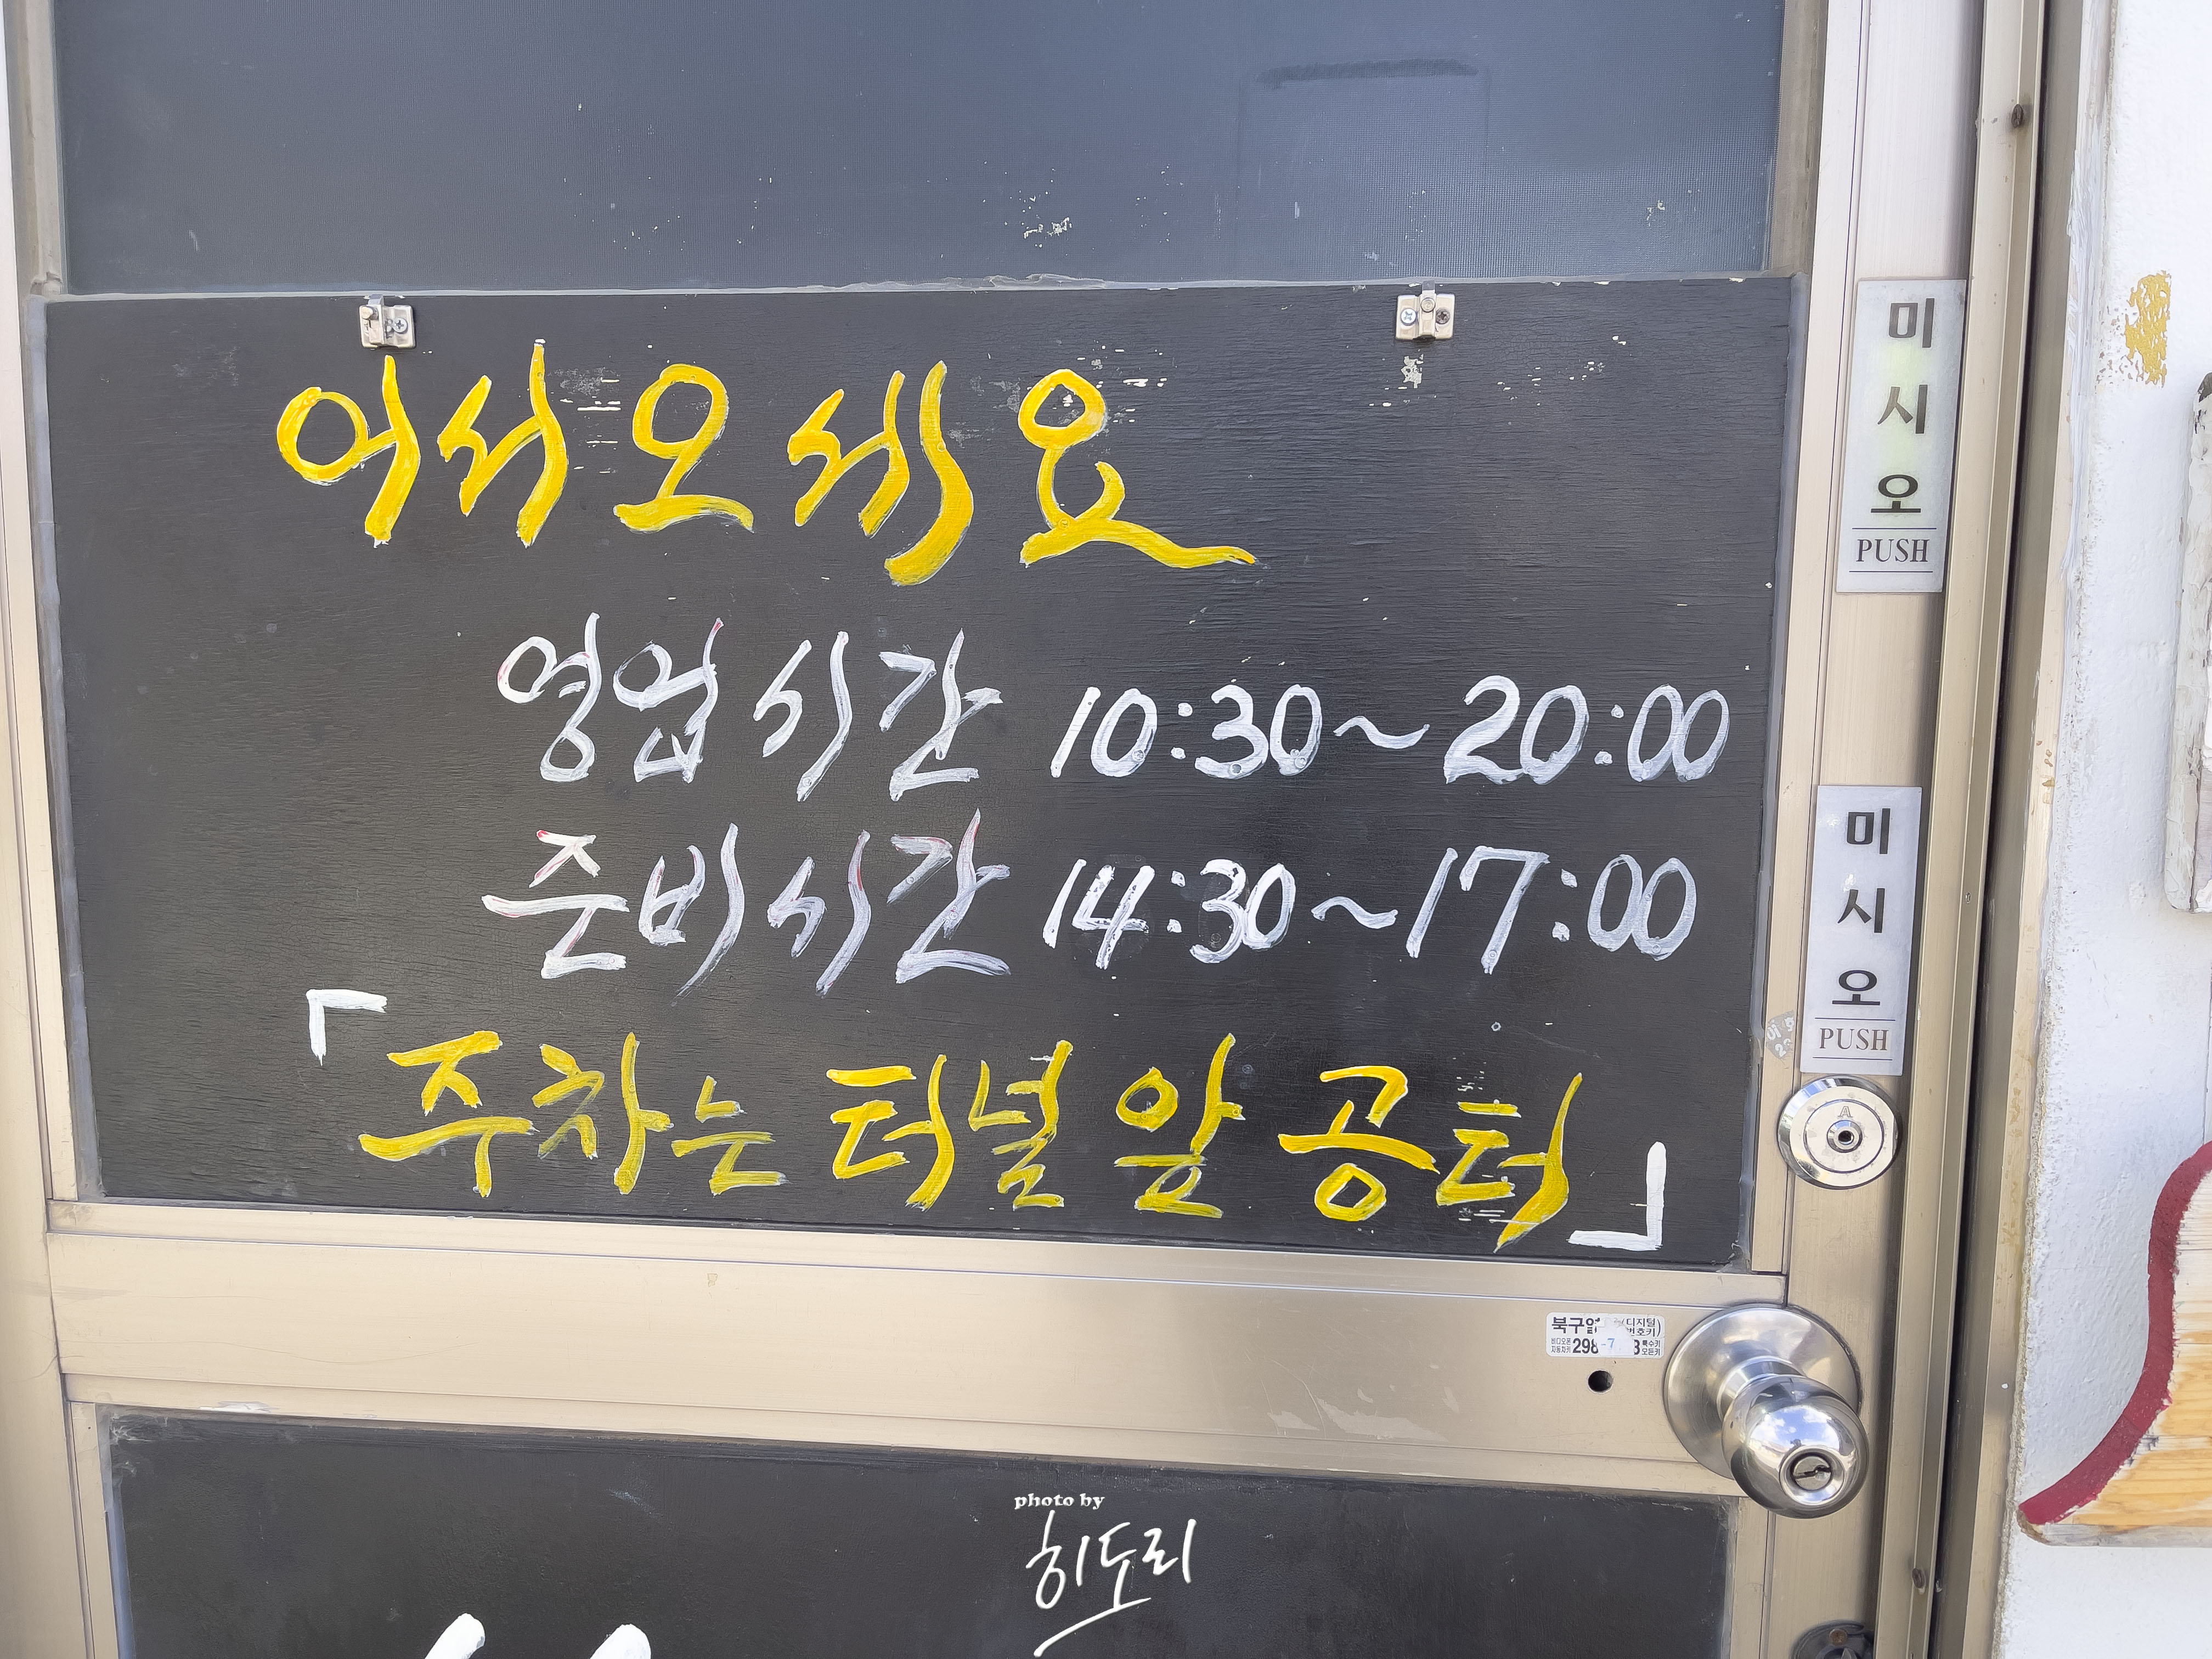 어서오세요
영업시간 10:30~20:00
준비시간 14:30~17:00
「주차는 터널 앞 공터」
미시오
PUSH
미시오
PUSH
북구 (디지털
번호키)
비디오폰 298-7 특수키
자동차키 모든키
photo by
히도리